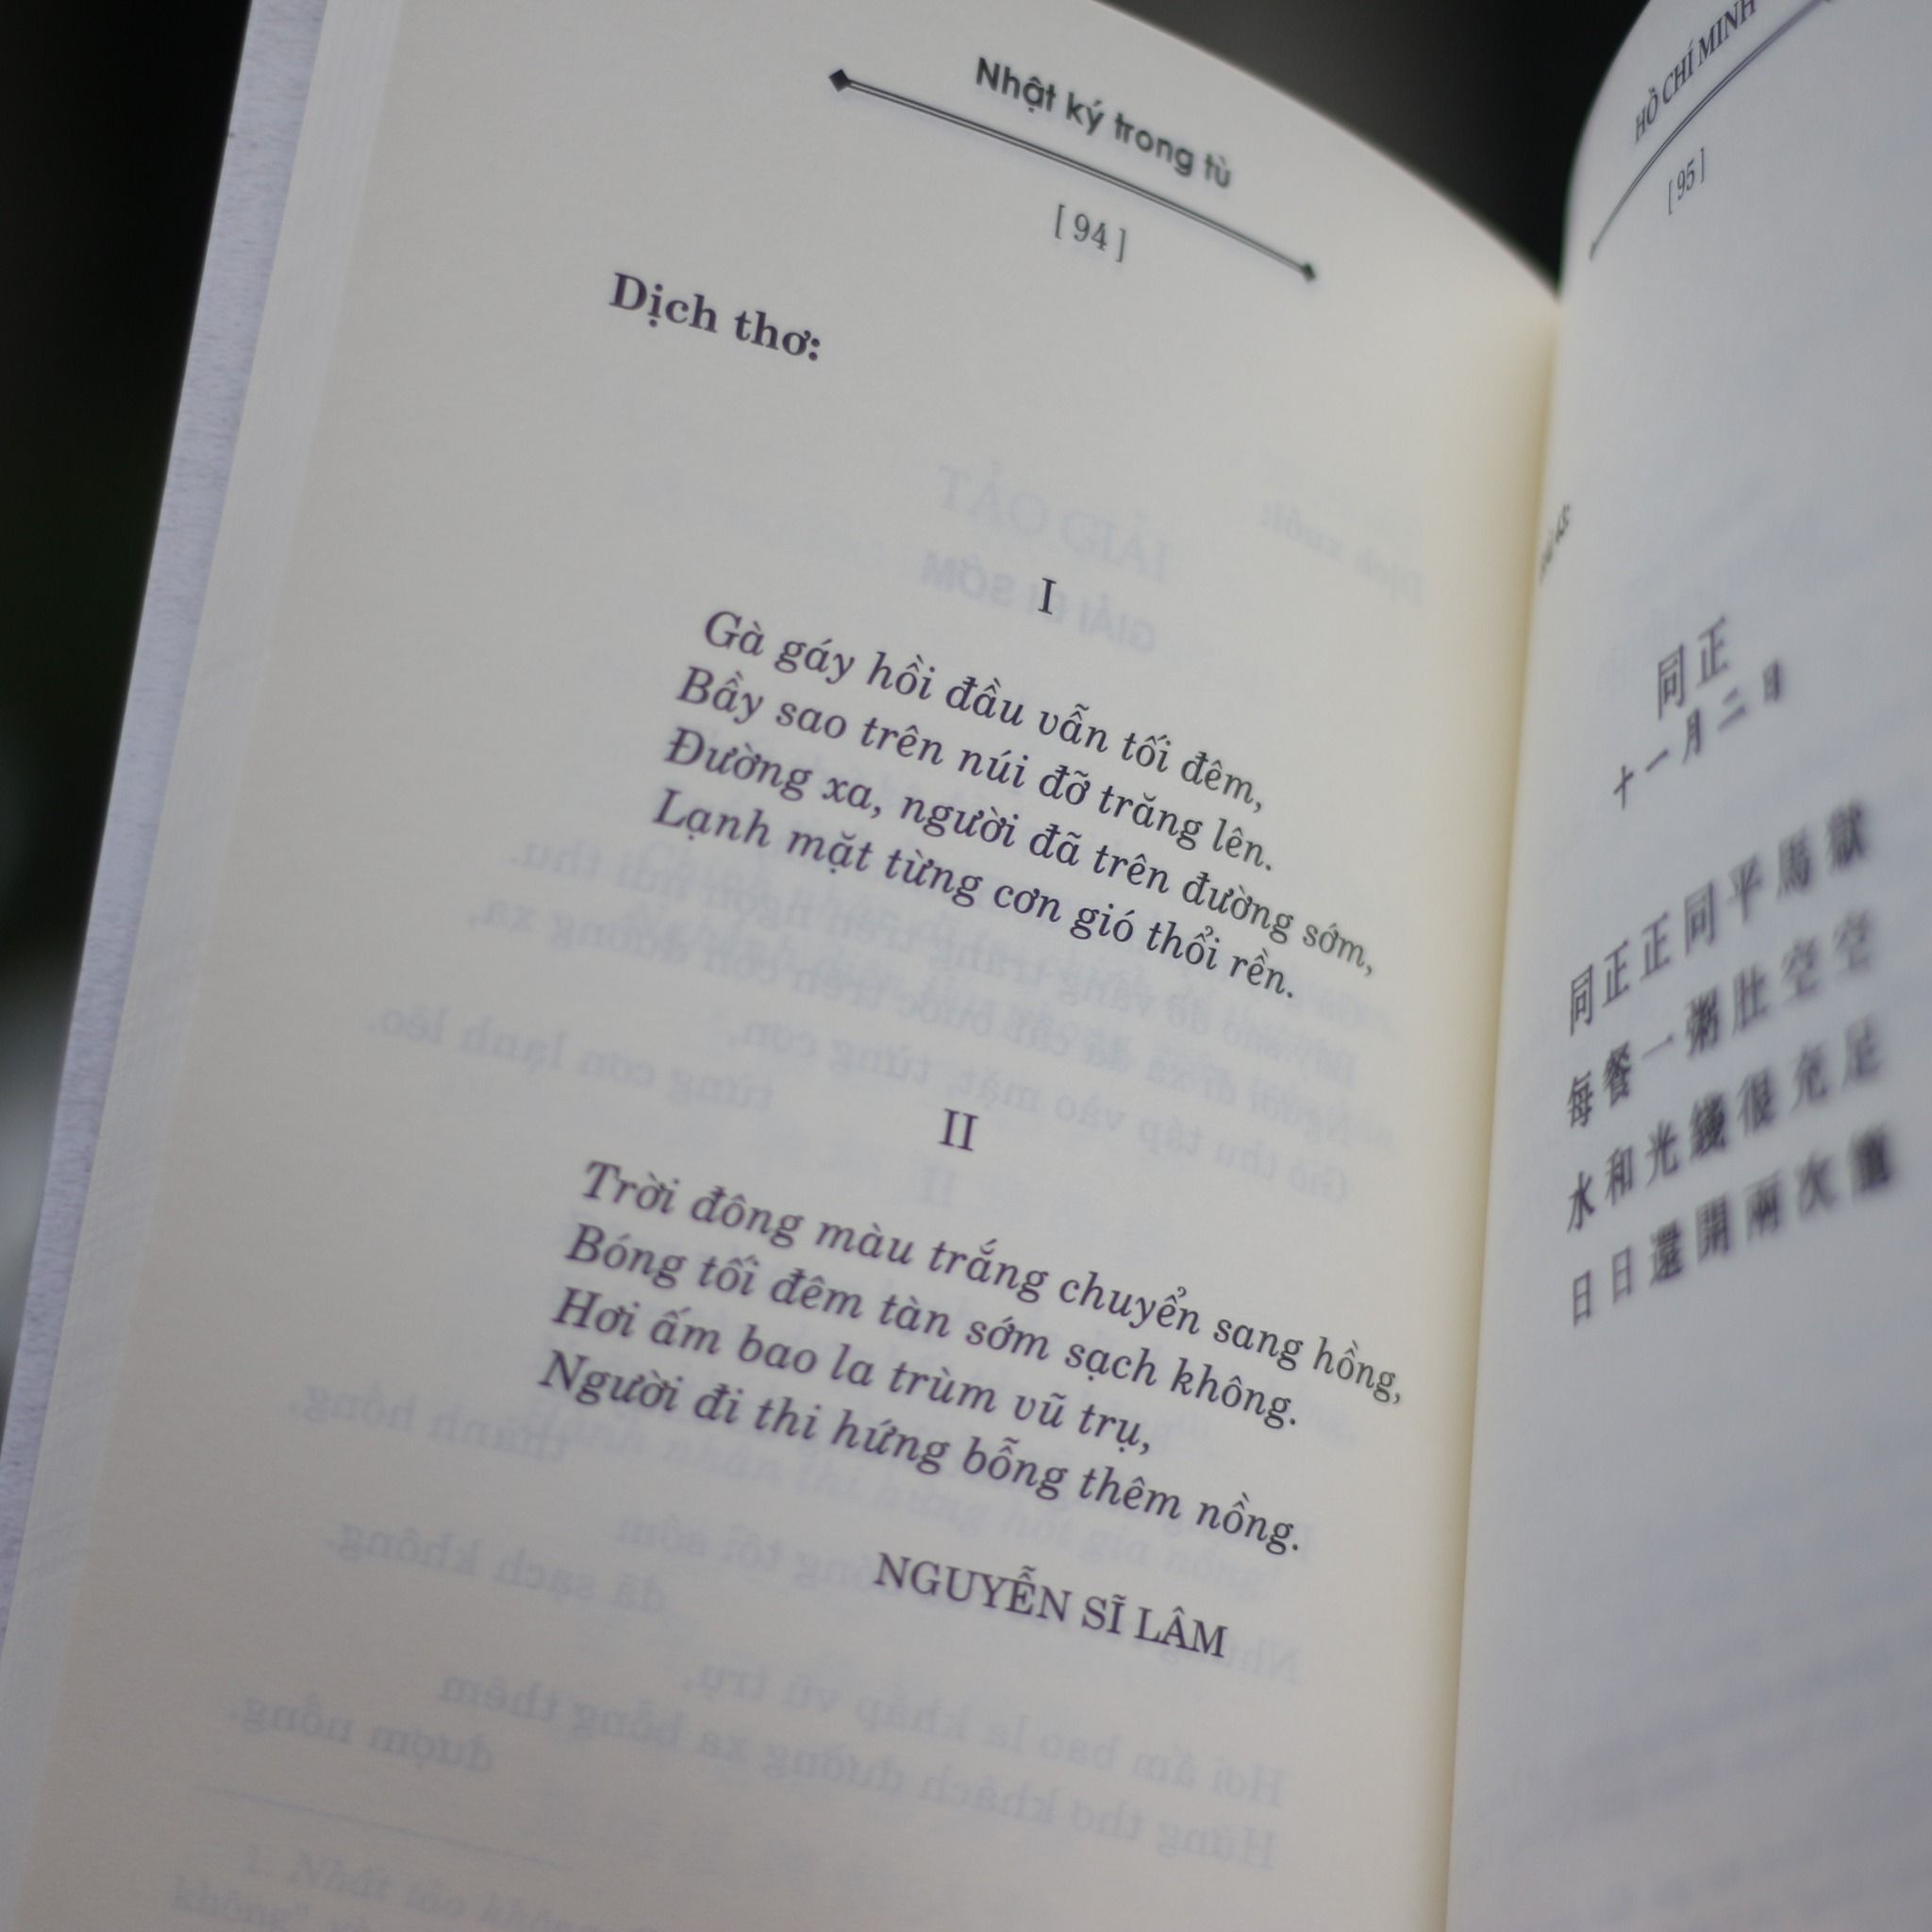 Nhật ký trong tù
[ 94 ]
Dịch thơ:
I
Gà gáy hồi đầu vẫn tối đêm,
Bầy sao trên núi đỡ trăng lên.
Đường xa, người đã trên đường sớm,
Lạnh mặt từng cơn gió thổi rền.
II
Trời đông màu trắng chuyển sang hồng,
Bóng tối đêm tàn sớm sạch không.
Hơi ấm bao la trùm vũ trụ,
Người đi thi hứng bỗng thêm nồng.
NGUYỄN SĨ LÂM
HỒ CHÍ MINH
[ 95 ]
同正
十一月二日
同正正同平馬獄
每餐一粥肚空空
水和光幾很充足
日日還開兩次